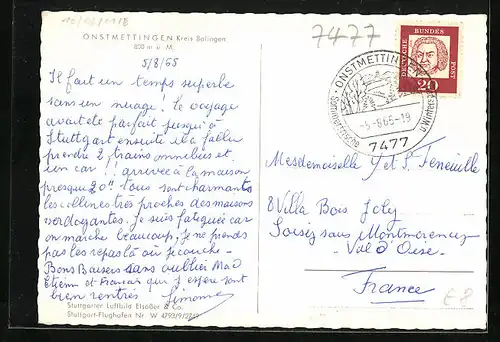 10/06/1118
7477
ONSTMETTINGEN Kreis Balingen
800 m ü. M.
5/8/65
Il fait un temps superbe
sans un nuage. le voyage
avait été parfait jusqu'à
Stuttgart ensuite il a fallu
prendre 2 trains omnibus et
un car! arrivée à la maison
presque 20H tous sont charmants
les collines très proches des maisons
verdoyantes. Je suis fatiguée car
on marche beaucoup, je ne prends
pas les repas là où je couche.
Bons Baisers sans oublier Mad
Etienn et Francais que j'espère sont
bien rentrés. Simone
Stuttgarter Luftbild Elsäßer & Co.
Stuttgart-Flughafen Nr. W 4793/9/
DEUTSCHE BUNDESPOST
20
ONSTMETTINGEN
u. Winter
-5.-8.65-19
7477
Mesdemoiselles J et S
8 Villa Bois Joly
Soisy sous Montmorency
Val d'Oise
France
€8